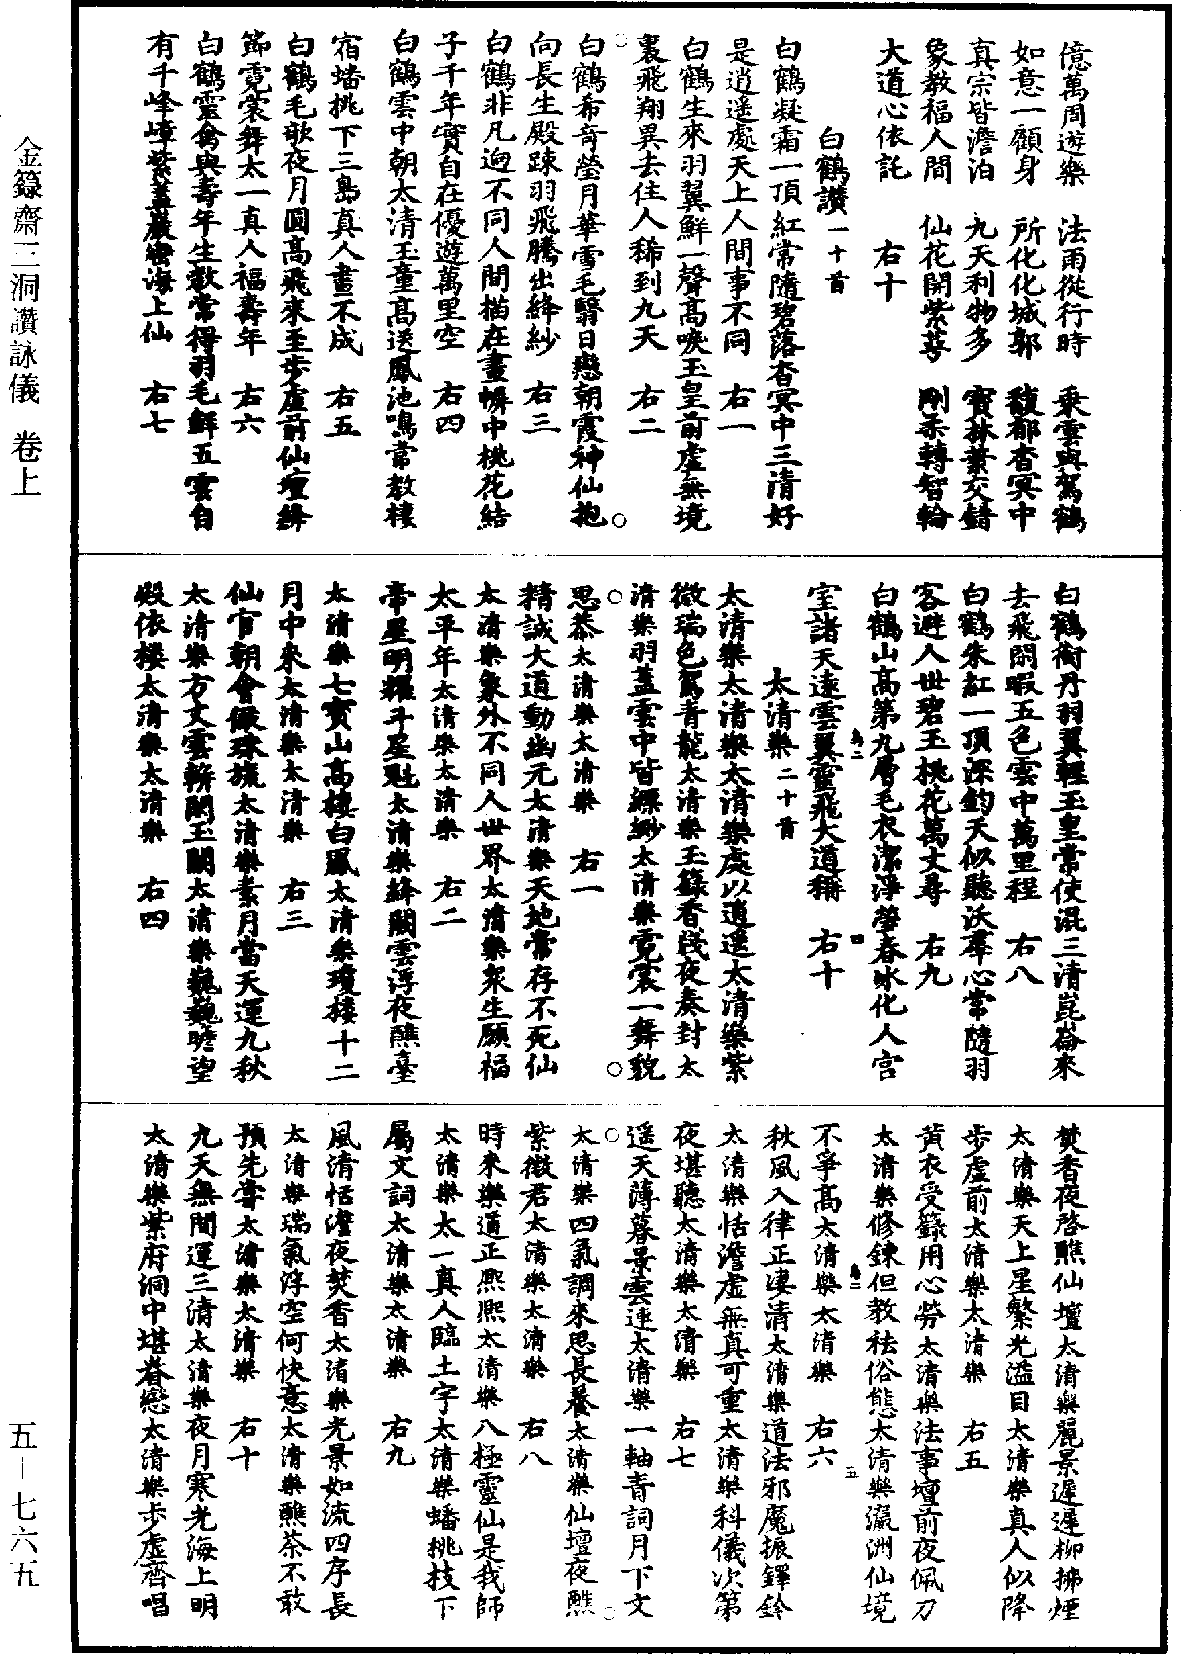 億萬周遊樂　法雨從行時　乘雲與駕鶴
如意一顧身　所化化城郭　馥郁杳冥中
真宗皆澹泊　九天利物多　寶林葉交錯
象教福人間　仙花開紫萼　剛柔轉智輪
大道心依託　右十
白鶴讚一十首
白鶴凝霜一頂紅常隨碧落杳冥中三清好
是逍遥處天上人間事不同　右一
白鶴生來羽翼鮮一聲高唳玉皇前虚無境
裏飛翔異去住人稀到九天　右二
白鶴希奇瑩月華雪毛翳日戀朝霞神仙抱
向長生殿踈羽飛騰出絳紗　右三
白鶴非凡迥不同人間描在畫幈中桃花結
子千年實自在優遊萬里空　右四
白鶴雲中朝太清玉童高送鳳池鳴常教棲
宿蟠桃下三島真人畫不成　右五
白鶴毛歌夜月圓高飛來至步虚前仙壇絳
節霓裳舞太一真人福壽年　右六
白鶴靈禽與壽年生教常得羽毛鮮五雲自
有千峰嶂紫蓋巖巒海上仙　右七
白鶴銜丹羽翼輕玉皇常使混三清崑崙來
去飛閑暇五色雲中萬里程　右八
白鶴朱紅一頂深鈞天似聽沃羣心常隨羽
客避人世碧玉桃花萬丈尋　右九
白鶴山高第九層毛衣潔淨瑩春冰化人宫
室諸天遠雲翼靈飛大道稱　右十
太清樂二十首
太清樂太清樂太清樂處以逍遥太清樂紫
微瑞色駕青龍太清樂玉籙香牋夜奏封太
清樂羽蓋雲中皆縹緲太清樂霓裳一舞貌
思恭太清樂太清樂　右一
精誠大道動幽元太清樂天地常存不死仙
太清樂象外不同人世界太清樂衆生願福
太平年太清樂太清樂　右二
帝星明耀斗星魁太清樂絳闕雲浮夜醮臺
太清樂七寶山高棲白鳳太清樂瓊樓十二
月中來太清樂太清樂　右三
仙官朝會儼珠旒太清樂素月當天運九秋
太清樂方丈雲軿閑玉闕太清樂巍巍瞻望
殿依樓太清樂太清樂　右四
焚香夜啓醮仙壇太清樂麗景遲遲柳拂煙
太清樂天上星繁光溢目太清樂真人似降
步虚前太清樂太清樂　右五
黄衣受籙用心勞太清樂法事壇前夜佩刀
太清樂修鍊但教祛俗態太清樂瀛洲仙境
不爭高太清樂太清樂　右六
秋風入律正凄清太清樂道法邪魔振鐸鈴
太清樂恬澹虚無真可重太清樂科儀次第
夜堪聽太清樂太清樂　右七
遥天薄暮景雲連太清樂一軸青詞月下文
太清樂四氣調來思長養太清樂仙壇夜醮
紫微君太清樂太清樂　右八
時來樂道正熙熙太清樂八極靈仙是我師
太清樂太一真人臨土宇太清樂蟠桃枝下
屬文詞太清樂太清樂　右九
風清恬澹夜焚香太清樂光景如流四序長
太清樂瑞氣浮空何快意太清樂醮茶不敢
預先嘗太清樂太清樂　右十
九天無間運三清太清樂夜月寒光海上明
太清樂紫府洞中堪眷戀太清樂步虚齊唱
金籙齋三洞讚詠儀　卷上
五－七六九